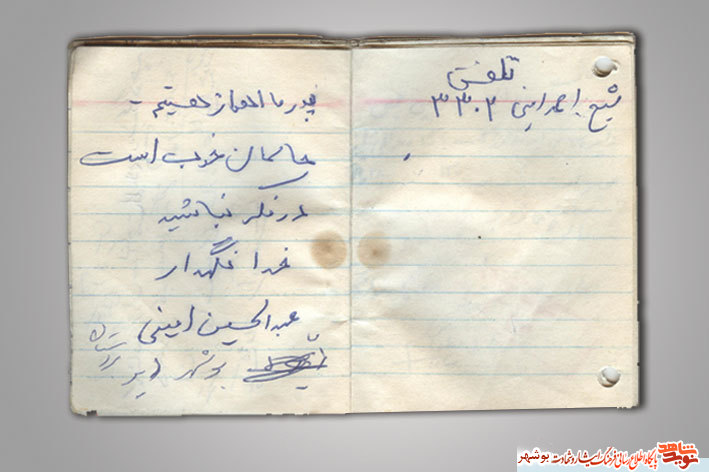 تلفن
شیخ احمد امینی ۳۳۰۲
پدر ما اهواز هستیم -
حالمان خوب است
در فکر نباشید
خدا نگهدار
عبدالحسین امینی
بوشهر
نوید شاهد
پایگاه اطلاع رسانی فرهنگ ایثار و شهادت بوشهر